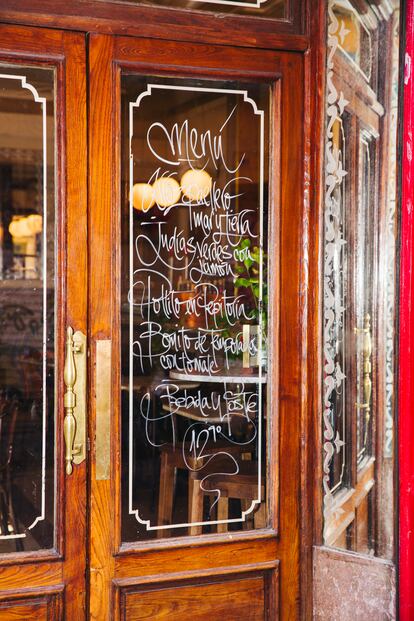 Menú
mar y tierra
Judías verdes con
jamón
Pollito en Pepitoria
Bonito de temporada
con tomate
Bebida y Postre
12,90